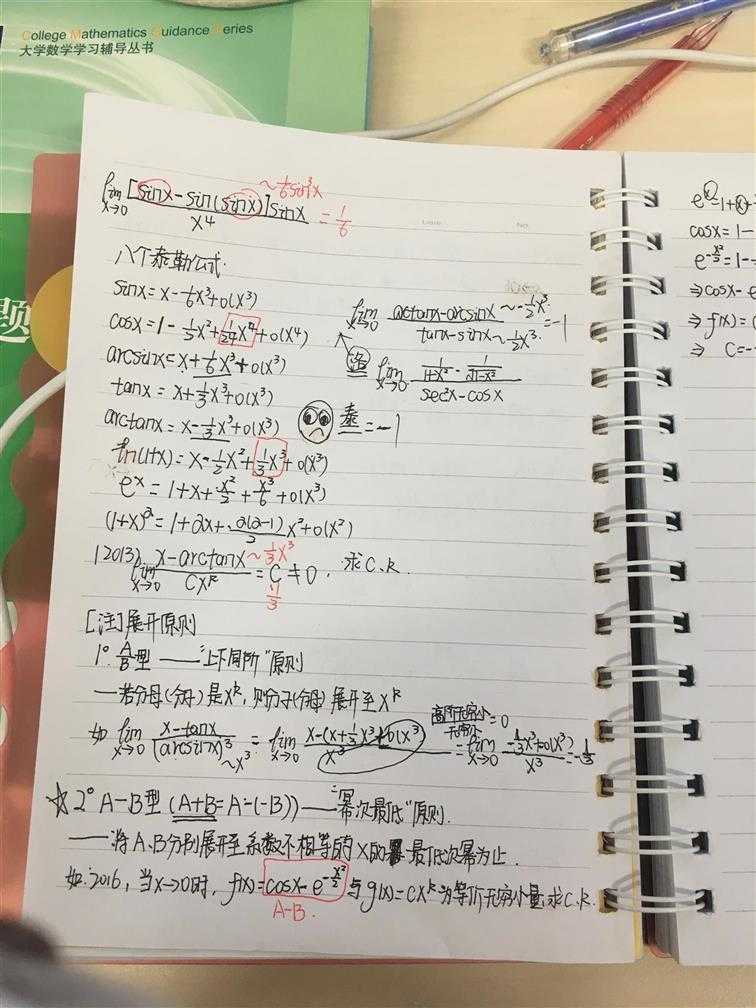 College Mathematics Guidance Series
大学数学学习辅导丛书
题
lim x→0 [sinx-sin(sinx)]sinx / x⁴ ~1/6 sin³x = 1/6
八个泰勒公式.
sinx = x-1/6x³+o(x³)
cosx = 1-1/2x²+1/24x⁴+o(x⁴)
arcsinx = x+1/6x³+o(x³)
tanx = x+1/3x³+o(x³)
arctanx = x-1/3x³+o(x³)
ln(1+x) = x-1/2x²+1/3x³+o(x³)
eˣ = 1+x+x²/2+x³/6+o(x³)
(1+x)ᵃ = 1+ax+a(a-1)/2 x²+o(x²)
lim x→0 arctanx-arcsinx ~-1/2x³ / tanx-sinx ~1/2x³ = -1
洛 lim x→0 (1/(1+x²) - 1/√(1-x²)) / (sec²x-cosx)
泰 = -1
12013) lim x→0 x-arctanx ~1/3x³ / cxᵏ = C ≠ 0, 求C.k.
1/3
[注]展开原则
1°. A/B型 ——"上下同阶"原则
—若分母(分子)是xᵏ, 则分子(分母)展开至xᵏ
如 lim x→0 x-tanx / (arcsinx)³ ~x³ = lim x→0 x-(x+1/3x³+o(x³)) / x³ = lim x→0 -1/3x³+o(x³) / x³ = -1/3
高阶无穷小/无穷小 = 0
☆2° A-B型 (A+B=A-(-B)) ——"幂次最低"原则.
——将A、B分别展开至系数不相等的x的最低次幂为止.
如.2016, 当x→0时, f(x)=cosx-e^(-x²/2) 与g(x)=cxᵏ为等价无穷小量,求C.k.
A-B.
eˣ=1+x+
cosx=1-
e^(-x²/2)=1-
⇒cosx-e
⇒ f(x)=(
⇒ C=-